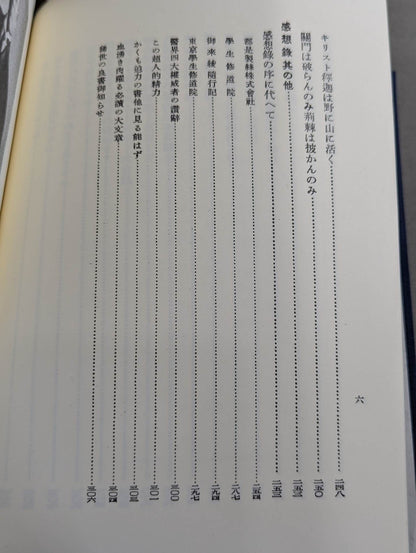 キリスト釋迦は野に山に活く……二四八
關門は破らんのみ荊棘は披かんのみ……二五〇
感想錄其の他……二五三
感想錄の序に代へて……二五三
郡是製絲株式會社……二五四
學生修道院……二八七
御來綾隨行記……二九一
東京學生修道院……二九七
醫界四大權威者の讚辭……三〇〇
この超人的精力……三〇一
かくも迫力の書他に見る能はず……三〇三
血湧き肉躍る必讀の大文章……三〇四
稀世の良書御知らせ……三〇六
六